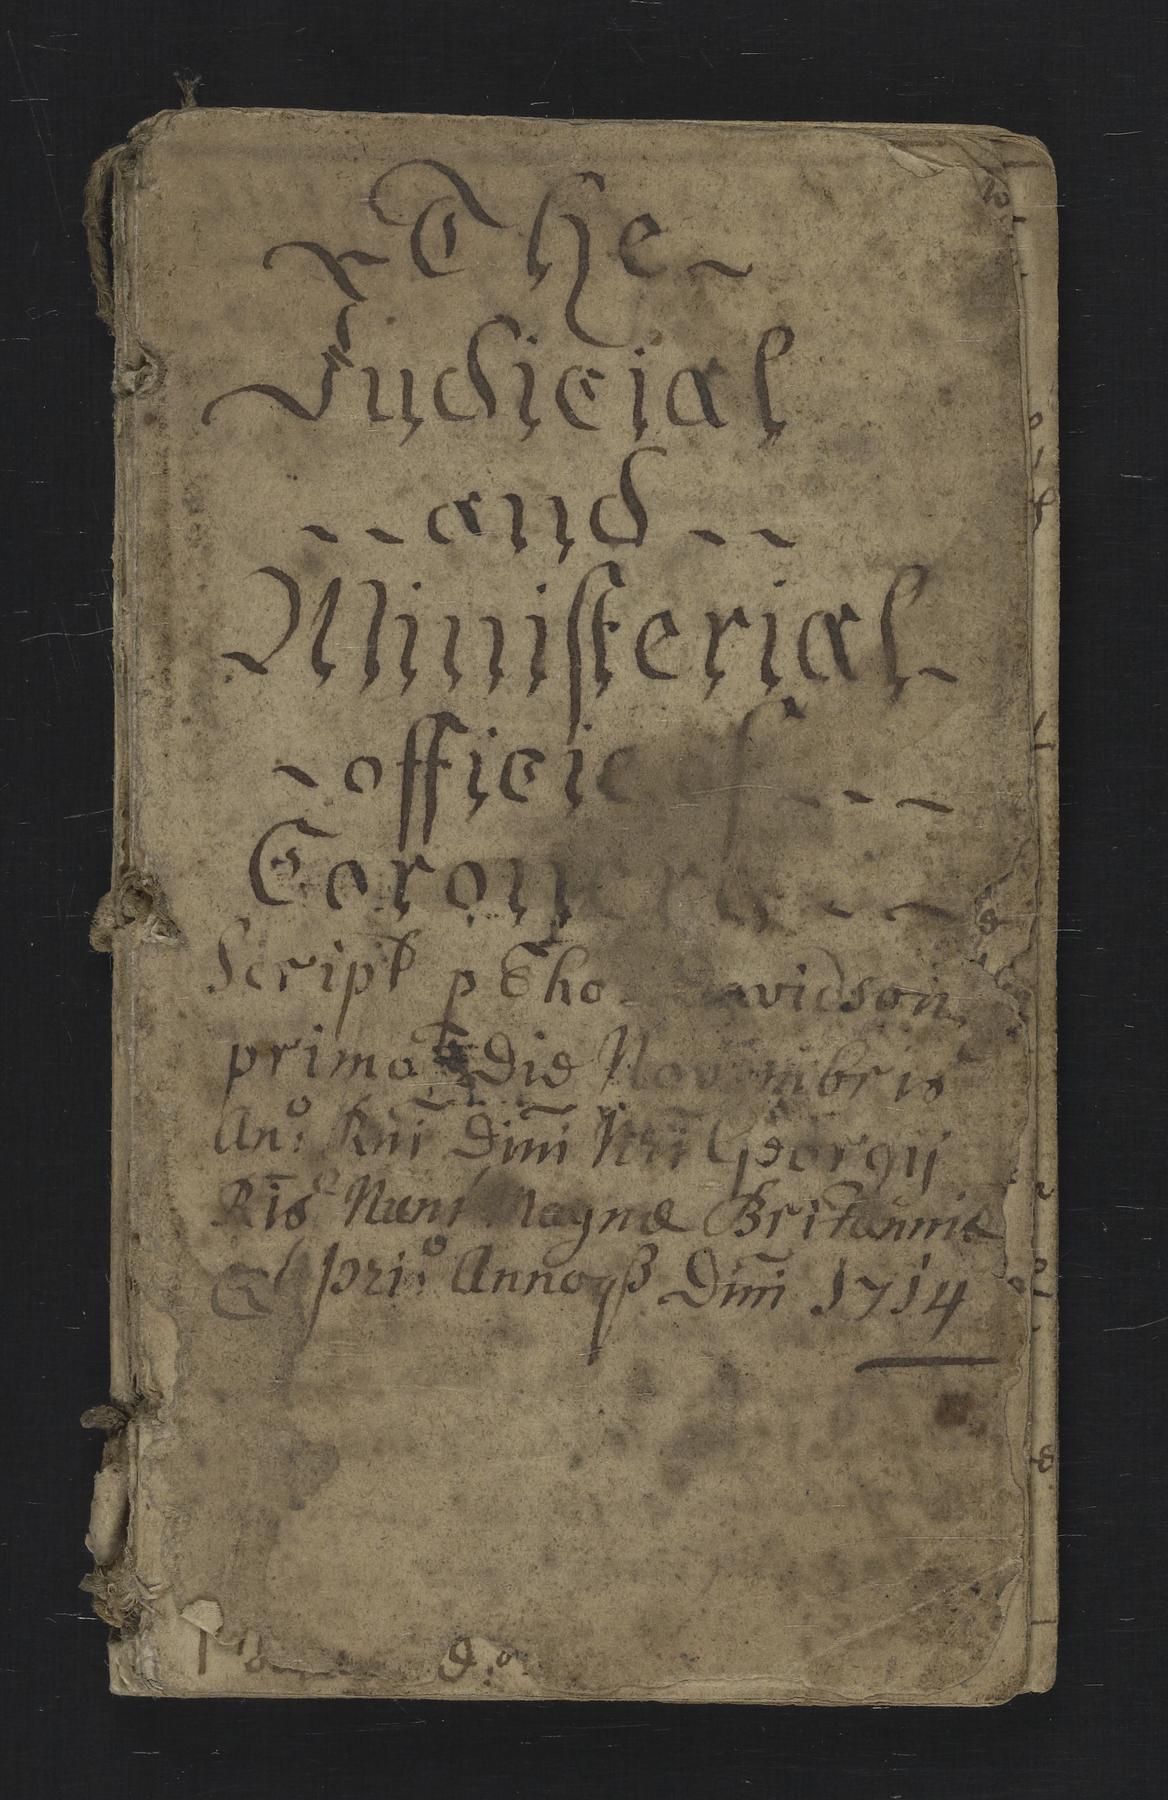 The
Judicial
and
Ministerial
officies of
Coroners
Script p Tho: Davidson
primo Die Novembris
An.º Rñi Dñni Nrī Georgij
Ris Nunc Magnæ Britanniæ
&c pri.º Annoqß Dñni 1714